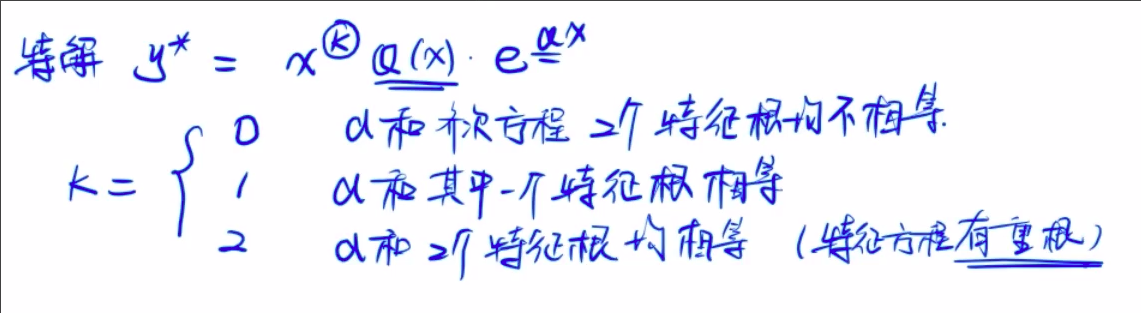 特解 y* = x^k Q(x)·e^{αx}
k = { 0 α和齐次方程2个特征根均不相等.
1 α和其中一个特征根相等
2 α和2个特征根均相等 (特征方程有重根)